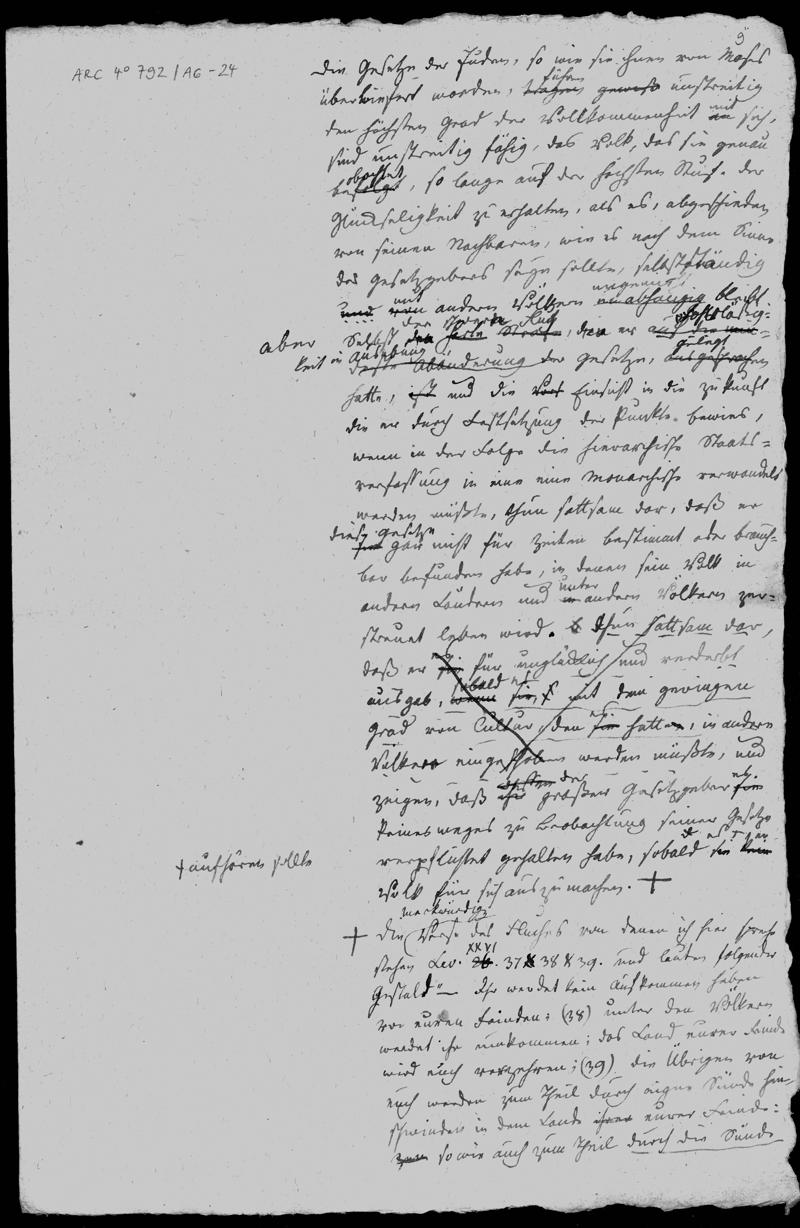 9
ARC 4° 792 / A6 - 24
Die Gesetze der Juden, so wie sie ihnen von Moses
überliefert worden, führen unstreitig
den höchsten Grad der Vollkommenheit mit sich,
sind unstreitig fähig, das Volk, das sie genau
beobachtet, so lange auf der höchsten Stufe der
Glückseligkeit zu erhalten, als es, abgeschieden
von seinen Nachbaren, wie es nach dem Sinne
des Gesetzgebers seyn sollte, selbstständig
mit andern Völkern bleibt.
aber Selbst der Fluch, den er
keit in Ausübung der Gesetze, gelegt
hatte, und die Einsicht in die Zukunft
die er durch Festsetzung der Punkte bewies,
wenn in der Folge die hierarchische Staats=
verfassung in eine eine Monarchische verwandelt
werden müßte, thun sattsam dar, daß er
diese Gesetze
gar nicht für Zeiten bestimmt oder brauch=
bar befunden habe, in denen sein Volk in
andern Ländern und unter andern Völkern zer=
streuet leben wird. thun sattsam dar,
daß er für unglücklich und verderbt
ausgab, sobald es mit dem geringen
Grad von Cultur, den hatte, in andere
Völker eingeschoben werden müßte, und
zeigen, daß der große Gesetzgeber
keinesweges zu Beobachtung seiner Gesetze
verpflichtet gehalten habe, sobald
Volk für sich auszumachen. +
+ aufhören sollte
merkwürdige
+ Die Verse des Fluches von denen ich hier spreche
stehen Lev. XXVI. 37 38 39. und lauten folgender
Gestalt "— Ihr werdet kein Aufkommen haben
vor euren Feinden: (38) unter den Völkern
werdet ihr umkommen; das Land eurer Feinde
wird euch verzehren; (39) die Übrigen von
euch werden zum Theil durch eigne Sünde hin-
schwinden in dem Lande eurer Feinde:
so wie auch zum Theil durch die Sünde